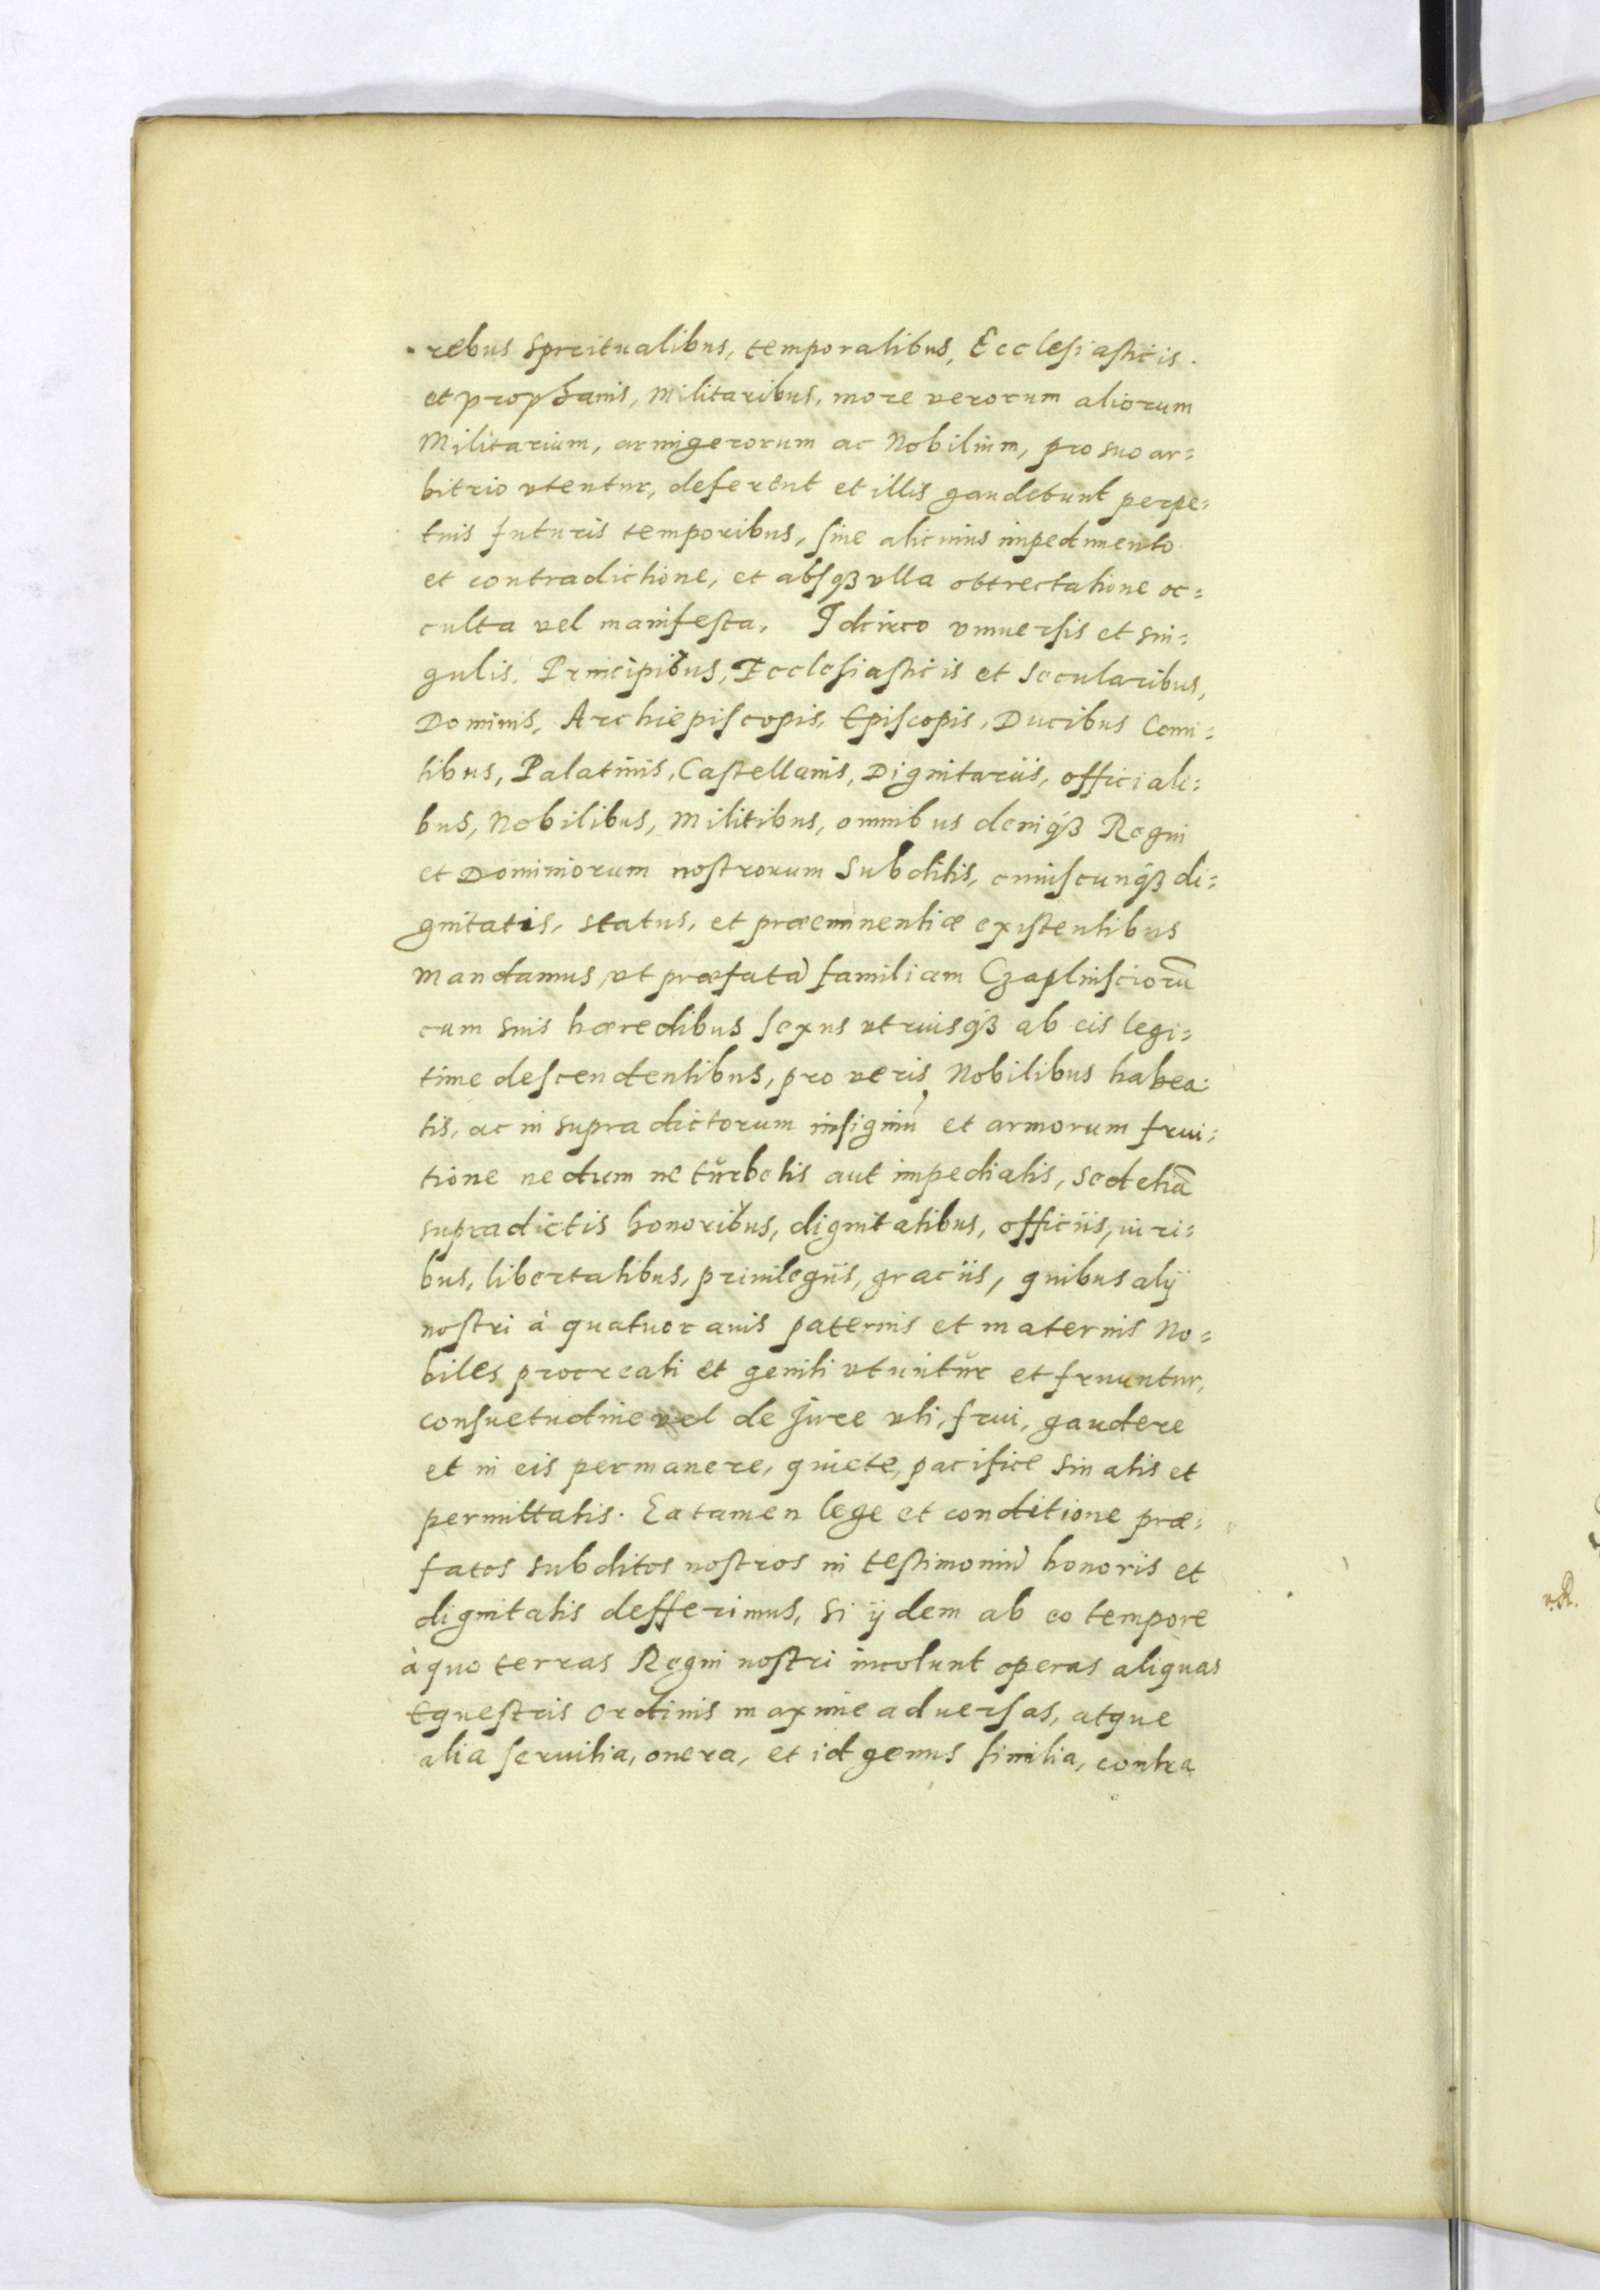 rebus spiritualibus, temporalibus, Ecclesiasticis.
et prophanis, Militaribus, more verorum aliorum
Militarium, armigerorum ac Nobilium, pro suo ar=
bitrio vtentur, deferent et illis gaudebunt perpe=
tuis futuris temporibus, sine alicuius impedimento
et contradictione, et absqꝫ vlla obtrectatione oc=
culta vel manifesta. Idcirco vniuersis et sin=
gulis, Principibus, Ecclesiasticis et Secularibus,
Dominis, Archiepiscopis, Episcopis, Ducibus Comi=
tibus, Palatinis, Castellanis, Dignitariis, officiali=
bus, Nobilibus, Militibus, omnibus deniqꝫ Regni
et Dominiorum nostrorum Subditis, cuiuscunqꝫ di=
gnitatis, status, et præeminentiæ existentibus
mandamus, vt præfatā familiam Czaplinsciorū
cum suis hæredibus sexus vtriusqꝫ ab eis legi=
time descendentibus, pro veris Nobilibus habea=
tis, ac in supradictorum insigniū et armorum frui=
tione nedum ne turbetis aut impediatis, sed etiā
supradictis honoribus, dignitatibus, officiis, iuri=
bus, libertatibus, priuilegiis, graciis, quibus alij
nostri à quatuor auis paternis et maternis No=
biles procreati et geniti vtuntur et fruuntur,
consuetudine vel de Jure vti, frui, gaudere
et in eis permanere, quiete, pacifice sinatis et
permittatis. Ea tamen lege et conditione præ=
fatos subditos nostros in testimoniū honoris et
dignitatis defferimus, si ijdem ab eo tempore
à quo terras Regni nostri incolunt operas aliquas
Equestris Ordinis maxime aduersas, atque
alia seruitia, onera, et id genus similia, contra